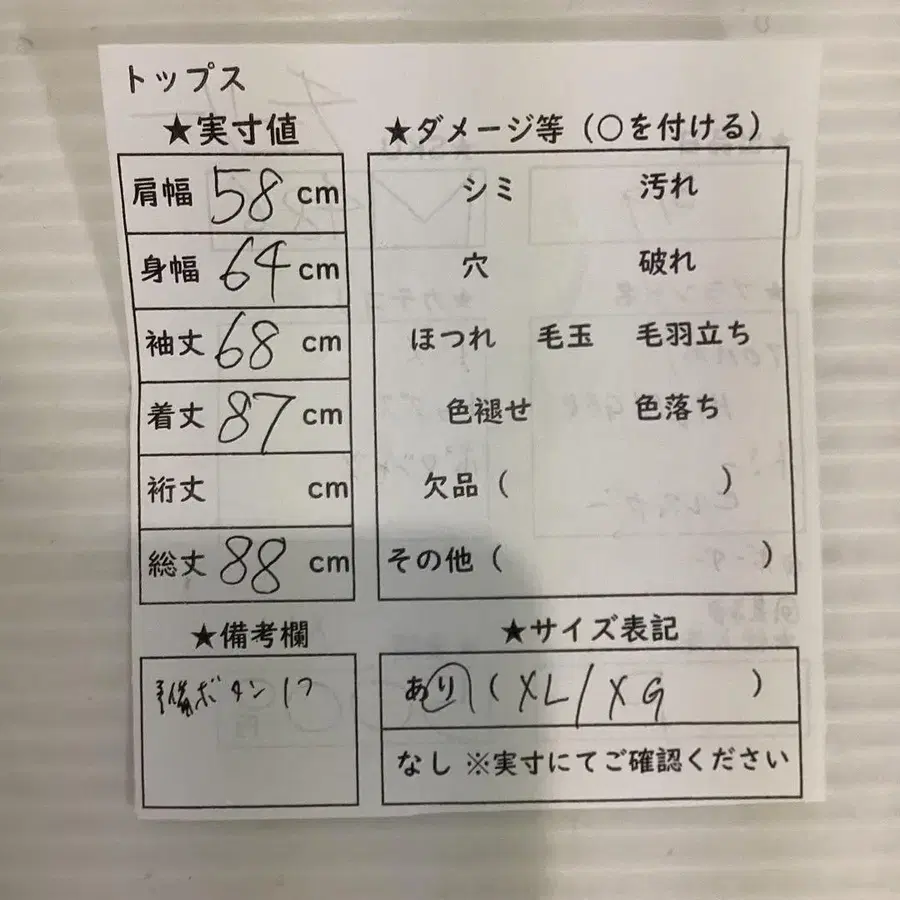 トップス
★実寸値
肩幅 58 cm
身幅 64 cm
袖丈 68 cm
着丈 87 cm
裄丈 cm
総丈 88 cm
★備考欄
予備ボタン1つ
★ダメージ等（○を付ける）
シミ 汚れ
穴 破れ
ほつれ 毛玉 毛羽立ち
色褪せ 色落ち
欠品（ ）
その他（ ）
★サイズ表記
あり（XL/XG ）
なし ※実寸にてご確認ください